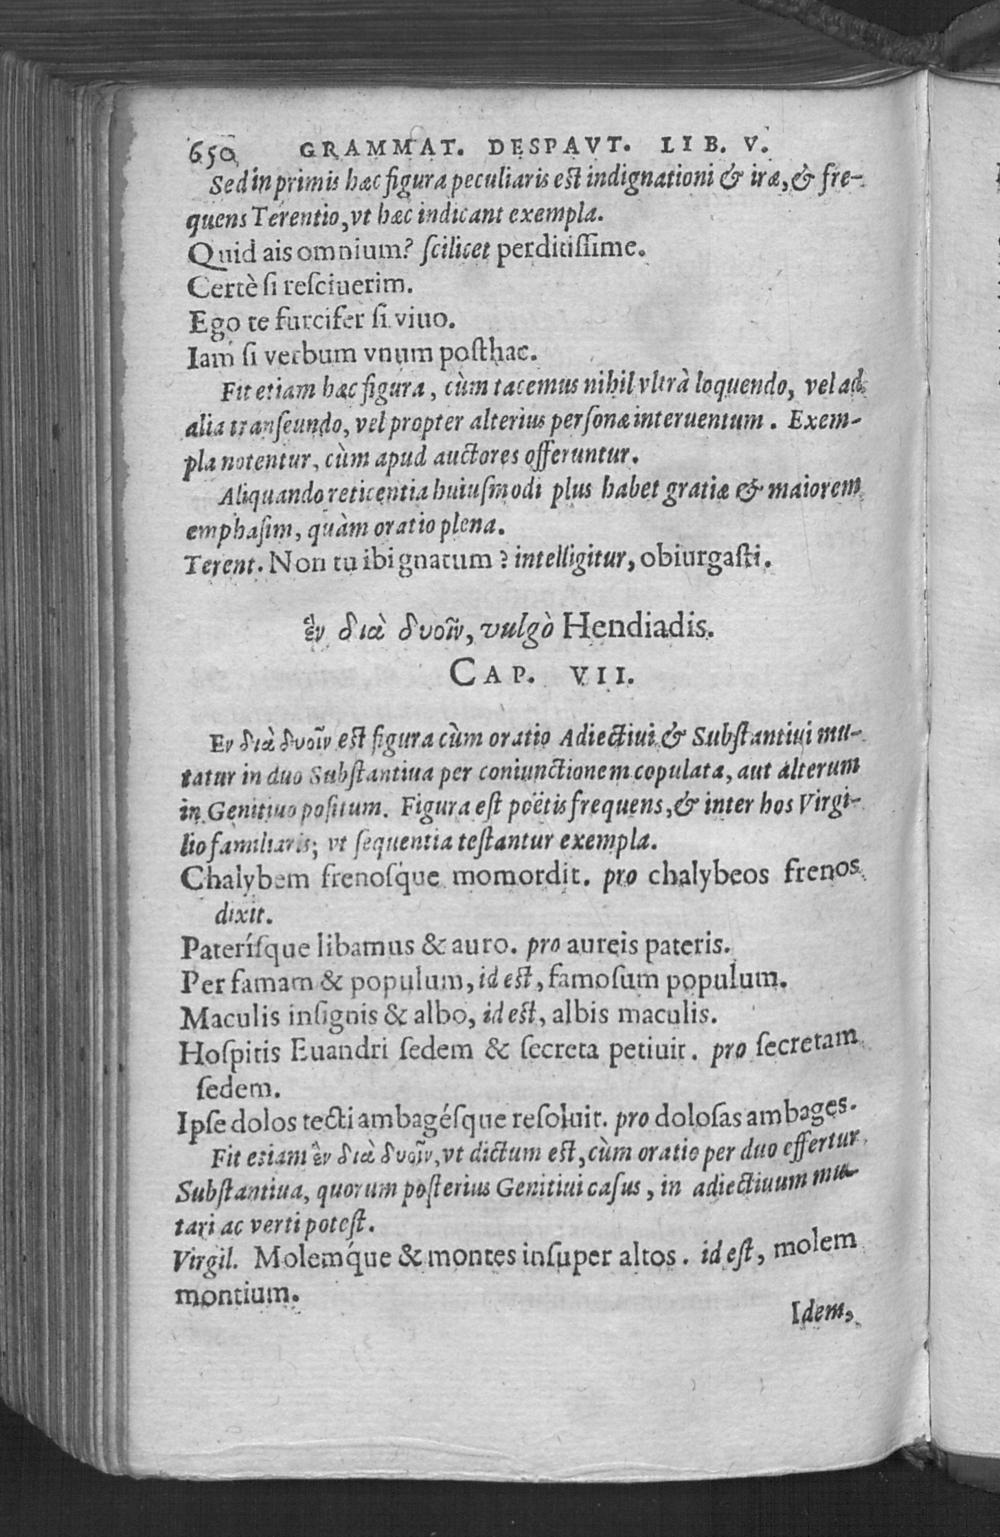 650 GRAMMAT. DESPAVT. LIB. V.
Sed in primis hæc figura peculiaris est indignationi & iræ, & fre-
quens Terentio, vt hæc indicant exempla.
Quid ais omnium? ſcilicet perditiſſime.
Certè ſi reſciuerim.
Ego te furcifer ſi viuo.
Iam ſi verbum vnum poſthac.
Fit etiam hæc figura, cùm tacemus nihil vltrà loquendo, vel ad
alia tranſeundo, vel propter alterius perſonæ interuentum. Exem-
pla notentur, cùm apud auctores offeruntur.
Aliquando reticentia huiuſmodi plus habet gratiæ & maiorem
emphaſim, quàm oratio plena.
Terent. Non tu ibi gnatum? intelligitur, obiurgaſti.
ἓν διὰ δυοῖν, vulgò Hendiadis.
CAP. VII.
Εν διὰ δυοῖν est figura cùm oratio Adiectiui & Subſtantiui mu-
tatur in duo Subſtantiua per coniunctionem copulata, aut alterum
in Genitiuo poſitum. Figura eſt poëtis frequens, & inter hos Virgi-
lio familiaris; vt ſequentia teſtantur exempla.
Chalybem frenoſque momordit. pro chalybeos frenos
dixit.
Pateríſque libamus & auro. pro aureis pateris.
Per famam & populum, id est, famoſum populum.
Maculis inſignis & albo, id est, albis maculis.
Hoſpitis Euandri ſedem & ſecreta petiuit. pro ſecretam
ſedem.
Ipſe dolos tecti ambagéſque reſoluit. pro doloſas ambages.
Fit etiam ἓν διὰ δυοῖν, vt dictum est, cùm oratio per duo effertur
Subſtantiua, quorum poſterius Genitiui caſus, in adiectiuum mu-
tari ac verti poteſt.
Virgil. Molemque & montes inſuper altos. id eſt, molem
montium.
Idem,